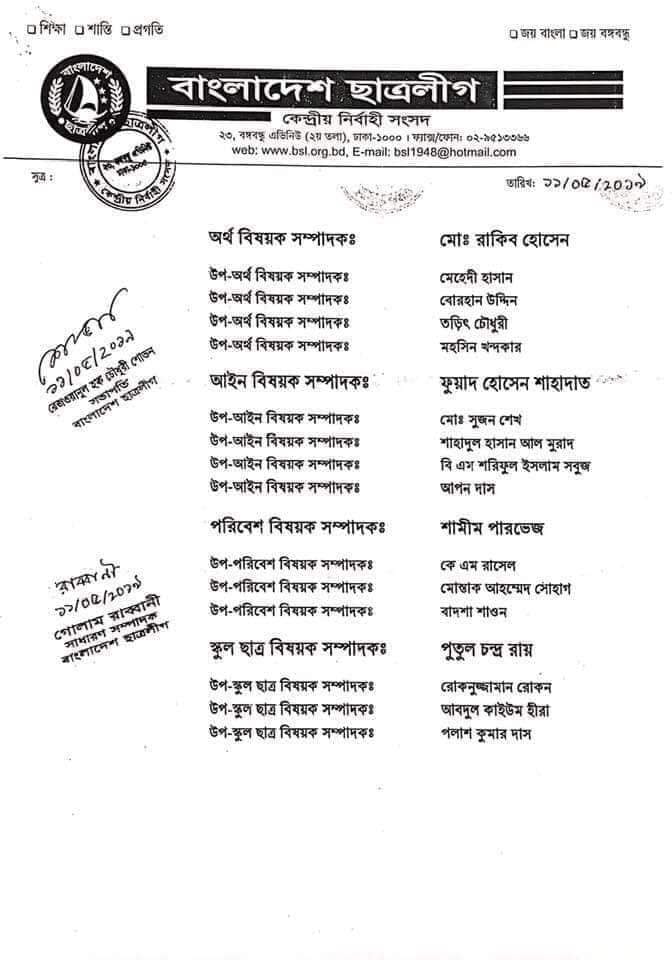 □ শিক্ষা □ শান্তি □ প্রগতি
□ জয় বাংলা □ জয় বঙ্গবন্ধু
বাংলাদেশ ছাত্রলীগ
বাংলাদেশ ছাত্রলীগ
কেন্দ্রীয় নির্বাহী সংসদ
২৩, বঙ্গবন্ধু এভিনিউ (২য় তলা), ঢাকা-১০০০ । ফ্যাক্স/ফোন: ০২-৯৫১৩৩৬৬
web: www.bsl.org.bd, E-mail: bsl1948@hotmail.com
কেন্দ্রীয় নির্বাহী সংসদ
সূত্র :
তারিখ: ১১/০৫/২০১৯
অর্থ বিষয়ক সম্পাদকঃ মোঃ রাকিব হোসেন
উপ-অর্থ বিষয়ক সম্পাদকঃ মেহেদী হাসান
উপ-অর্থ বিষয়ক সম্পাদকঃ বোরহান উদ্দিন
উপ-অর্থ বিষয়ক সম্পাদকঃ তড়িৎ চৌধুরী
উপ-অর্থ বিষয়ক সম্পাদকঃ মহসিন খন্দকার
১১/০৫/২০১৯
রেজওয়ানুল হক চৌধুরী শোভন
সভাপতি
বাংলাদেশ ছাত্রলীগ
আইন বিষয়ক সম্পাদকঃ ফুয়াদ হোসেন শাহাদাত
উপ-আইন বিষয়ক সম্পাদকঃ মোঃ সুজন শেখ
উপ-আইন বিষয়ক সম্পাদকঃ শাহাদুল হাসান আল মুরাদ
উপ-আইন বিষয়ক সম্পাদকঃ বি এম শরিফুল ইসলাম সবুজ
উপ-আইন বিষয়ক সম্পাদকঃ আপন দাস
পরিবেশ বিষয়ক সম্পাদকঃ শামীম পারভেজ
উপ-পরিবেশ বিষয়ক সম্পাদকঃ কে এম রাসেল
উপ-পরিবেশ বিষয়ক সম্পাদকঃ মোস্তাক আহম্মেদ সোহাগ
উপ-পরিবেশ বিষয়ক সম্পাদকঃ বাদশা শাওন
রাব্বানী
১১/০৫/২০১৯
গোলাম রাব্বানী
সাধারণ সম্পাদক
বাংলাদেশ ছাত্রলীগ
স্কুল ছাত্র বিষয়ক সম্পাদকঃ পুতুল চন্দ্র রায়
উপ-স্কুল ছাত্র বিষয়ক সম্পাদকঃ রোকনুজ্জামান রোকন
উপ-স্কুল ছাত্র বিষয়ক সম্পাদকঃ আবদুল কাইউম হীরা
উপ-স্কুল ছাত্র বিষয়ক সম্পাদকঃ পলাশ কুমার দাস